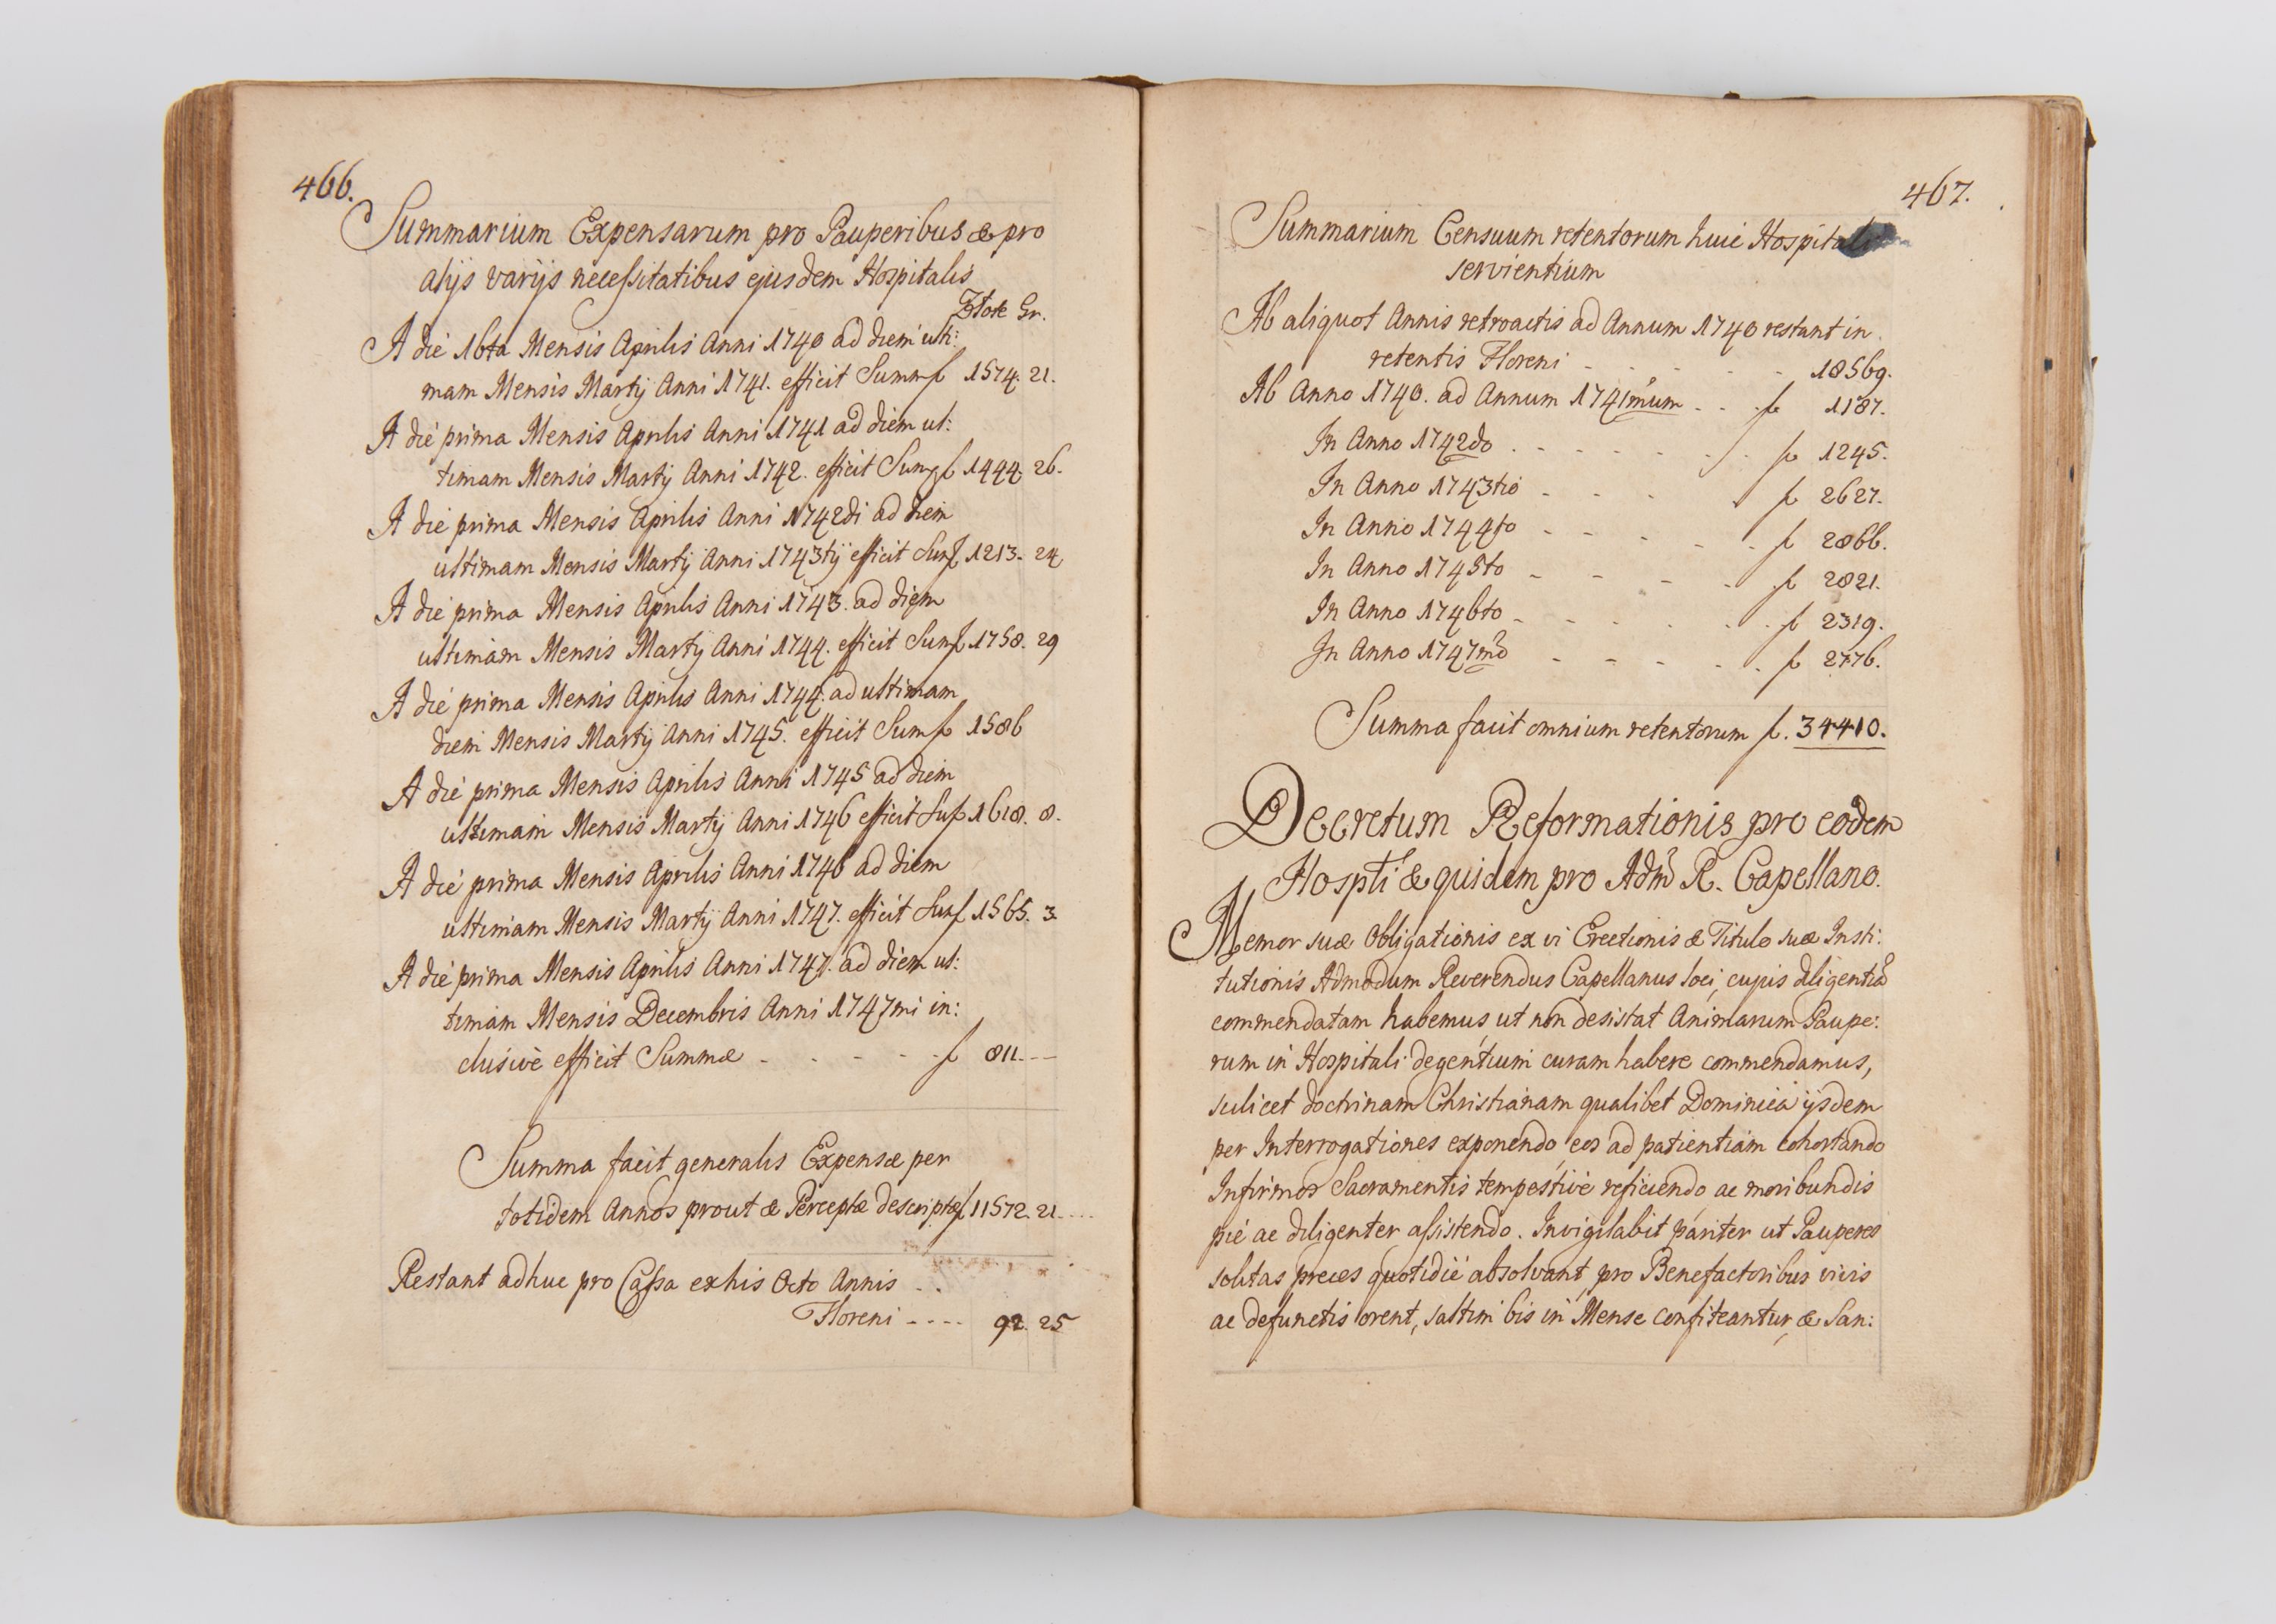 466.
Summarium Expensarum pro Pauperibus & pro
alijs varijs necessitatibus ejusdem Hospitalis
Gr.
A die 16ta Mensis Aprilis Anni 1740 ad diem ulti:
mam Mensis Martij Anni 1741. efficit Summ f 1574. 21.
A die prima Mensis Aprilis Anni 1741 ad diem ul:
timam Mensis Martij Anni 1742. efficit Sum f 1444. 26.
A die prima Mensis Aprilis Anni 1742di ad diem
ultimam Mensis Martij Anni 1743tij efficit Sum f 1213. 24
A die prima Mensis Aprilis Anni 1743. ad diem
ultimam Mensis Martij Anni 1744. efficit Sum f 1758. 29
A die prima Mensis Aprilis Anni 1744. ad ultimam
diem Mensis Martij Anni 1745. efficit Sum f 1586
A die prima Mensis Aprilis Anni 1745 ad diem
ultimam Mensis Martij Anni 1746 efficit Su f 1618. 8.
A die prima Mensis Aprilis Anni 1746 ad diem
ultimam Mensis Martij Anni 1747. efficit Sum f 1565. 3.
A die prima Mensis Aprilis Anni 1747. ad diem ul:
timam Mensis Decembris Anni 1747mi in:
clusivè efficit Summæ - - - - - f 811.--
Summa facit generalis Expensæ per
totidem Annos prout & Perceptæ descriptæ f 11572. 21....
Restant adhuc pro Cassa ex his Octo Annis . .
Floreni - - - - 92. 25
467.
Summarium Censuum retentorum huic Hospitali
servientium
Ab aliquot Annis retroactis ad Annum 1740 restant in
retentis Floreni - - - - - 18569.
Ab Anno 1740. ad Annum 1741mum - . . f 1187.
In Anno 1742do . - - - - - . f 1245.
In Anno 1743tio - - - f 2627.
In Anno 1744to - - - - . f 2866.
In Anno 1745to - - - - . f 2821.
In Anno 1746to - - - - . . f 2319.
In Anno 1747mo - - - . . f 2776.
Summa facit omnium retentorum f. 34410.
Decretum Reformationis pro eodem
Hospti & quidem pro Adm R. Capellano.
Memor suæ Obligationis ex vi Erectionis & Titulo suæ Insti:
tutionis Admodum Reverendus Capellanus loci, cujus diligentiã
commendatam habemus ut non desistat Animarum Paupe:
rum in Hospitali degentium curam habere commendamus,
scilicet doctrinam Christianam qualibet Dominica ijsdem
per Interrogationes exponendo, eos ad patientiam cohortando
Infirmos Sacramentis tempestivè reficiendo ac moribundis
piè ac diligenter assistendo. Invigilabit pariter ut Pauperes
solitas preces quotidiè absolvant, pro Benefactoribus vivis
ac defunctis orent, saltim bis in Mense confiteantur, & San: